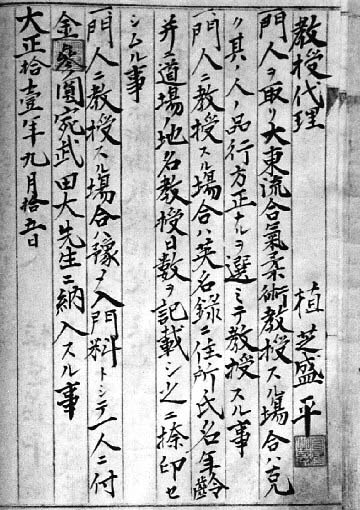 教授代理 植芝盛平
一門人ヲ取リ大東流合氣柔術教授スル場合ハ克
ク其ノ人ノ品行方正ナルヲ選ミテ教授スル事
一門人ニ教授スル場合ハ英名錄ニ住所氏名年齡
并ニ道場ノ地名教授日數ヲ記載シ之ニ捺印セ
シムル事
一門人ニ教授スル場合ハ豫メ入門料トシテ一人ニ付
金參圓宛武田大先生ニ納入スル事
大正拾壹年九月拾五日